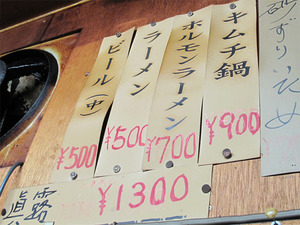 ビール(中)
¥500
ラーメン
¥500
ホルモンラーメン
¥700
キムチ鍋
¥900
¥1300